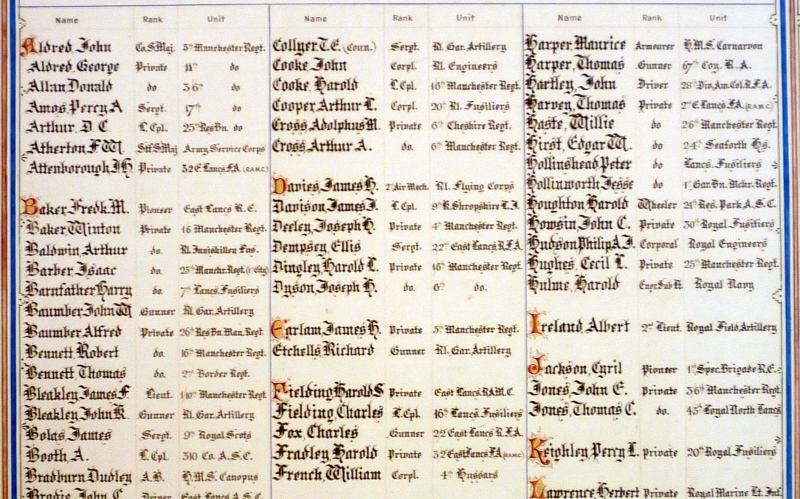 Name Rank Unit
Aldred, John Co.S.Maj. 5th Manchester Regt.
Aldred, George Private 11th do
Allan Donald do 36th do
Amos, Percy A Sergt. 17th do
Arthur, D. C. L.Cpl. 25th Res Bn. do
Atherton F W. Stf S Maj Army Service Corps
Attenborough J H Private 32 E Lancs. F.A. (R.A.M.C.)
Baker, Fredk. M. Pioneer East Lancs R. E.
Baker, Winton Private 16 Manchester Regt.
Baldwin, Arthur do. Rl. Inniskillen Fus.
Barber, Isaac do. 25th Manchr. Regt.
Barnfather, Harry do. 7th Lancs. Fusiliers
Baumber, John W Gunner Rl. Gar. Artillery
Baumber Alfred Private 26th Res Bn. Man. Regt.
Bennett Robert do. 16th Manchester Regt.
Bennett Thomas do. 2nd Border Regt.
Bleakley, James F. Lieut. Manchester Regt
Bleakley, John K. Gunner Rl. Gar. Artillery
Bolas, James Sergt. 9th Royal Scots
Booth, A. L. Cpl. 310 Co. A.S.C.
Bradburn Dudley A.B. H.M.S. Canopus
Brodie, John C. Driver East Lancs A.S.C.
Name Rank Unit
Collyer, T.E. (Coun.) Sergt. Rl. Gar. Artillery
Cooke, John Corpl. Rl. Engineers
Cooke, Harold L. Cpl. 16th Manchester Regt.
Cooper, Arthur L. Corpl. 20th Rl. Fusiliers
Cross, Adolphus M. Private 6th Cheshire Regt.
Cross, Arthur A. do. 6th Manchester Regt.
Davies, James H. 2nd Air Mech. Rl. Flying Corps
Davison, James J. L.Cpl. 9th K. Shropshire L.I.
Deeley, Joseph H. Private 4th Manchester Regt.
Dempsey, Ellis Sergt. 22nd East Lancs R.F.A.
Dingley, Harold L. Private 16th Manchester Regt.
Dyson, Joseph H. do. 6th do.
Earlam, James H. Private 5th Manchester Regt.
Etchells, Richard Gunner Rl. Gar. Artillery
Fielding, Harold S Private East Lancs. R.A.M.C.
Fielding Charles L.Cpl. 16th Lancs. Fusiliers
Fox, Charles Gunner 22 East Lancs R.F.A.
Fradley, Harold Private 32 East Lancs. F.A. (R.A.M.C.)
French, William Corpl. 4th Hussars
Name Rank Unit
Harper, Maurice Armourer H.M.S. Carnarvon
Harper, Thomas Gunner 67th Coy. R. A.
Hartley, John Driver 28th Div. Am. Col. R.F.A.
Harvey, Thomas Private 2nd E Lancs. F.A. (R.A.M.C.)
Haste, Willie do 26th Manchester Regt.
Hirst, Edgar W. do 24th Seaforth Hs.
Hollinshead Peter do Lancs. Fusiliers
Hollinworth Jesse do 1st Gar. Bn. Mchr. Regt.
Houghton Harold Wheeler 24th Res. Park A.S.C.
Howsin, John C. Private 30th Royal Fusiliers
Hudson Philip A. J. Corporal Royal Engineers
Hughes, Cecil L. Private 25th Manchester Regt.
Hulme, Harold Royal Navy
Ireland, Albert 2nd Lieut. Royal Field Artillery
Jackson, Cyril Pioneer 1st Spec. Brigade R.E.
Jones, John E. Private 36th Manchester Regt.
Jones, Thomas C. do. 45th Loyal North Lancs
Keighley, Percy L. Private 20th Royal Fusiliers
Lawrence Herbert Private Royal Marine Lt. Inf.